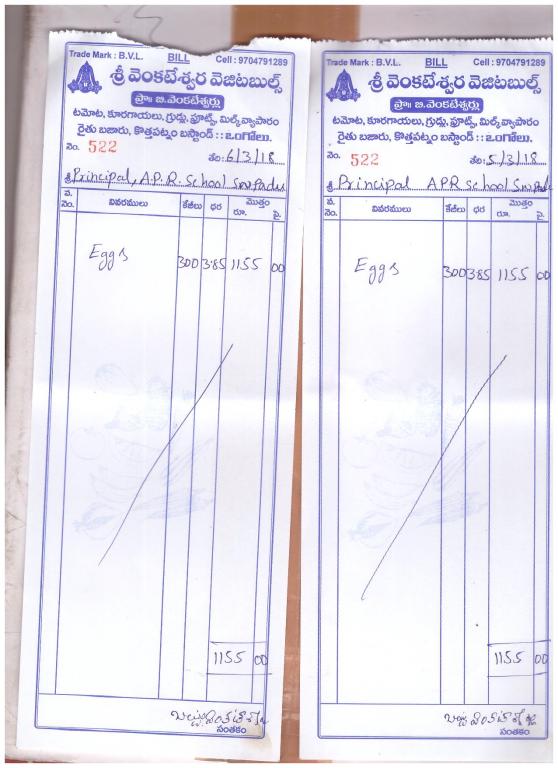 Trade Mark : B.V.L. BILL Cell : 9704791289
శ్రీ వెంకటేశ్వర వెజిటబుల్స్
ప్రొః బి.వెంకటేశ్వర్లు
టమోట, కూరగాయలు, గ్రుడ్లు, ఫ్రూట్స్, మిల్క్‌వ్యాపారం
రైతు బజారు, కొత్తపట్నం బస్టాండ్ :: ఒంగోలు.
నెం. 522 తేది: 6/3/18
శ్రీ Principal, A.P.R. School
వ. నెం. వివరములు కేజీలు ధర మొత్తం రూ. పై.
Eggs 300 3.85 1155 00
1155 00
సంతకం
Trade Mark : B.V.L. BILL Cell : 9704791289
శ్రీ వెంకటేశ్వర వెజిటబుల్స్
ప్రొః బి.వెంకటేశ్వర్లు
టమోట, కూరగాయలు, గ్రుడ్లు, ఫ్రూట్స్, మిల్క్‌వ్యాపారం
రైతు బజారు, కొత్తపట్నం బస్టాండ్ :: ఒంగోలు.
నెం. 522 తేది: 5/3/18
శ్రీ Principal APR School
వ. నెం. వివరములు కేజీలు ధర మొత్తం రూ. పై.
Eggs 300 385 1155 00
1155 00
సంతకం